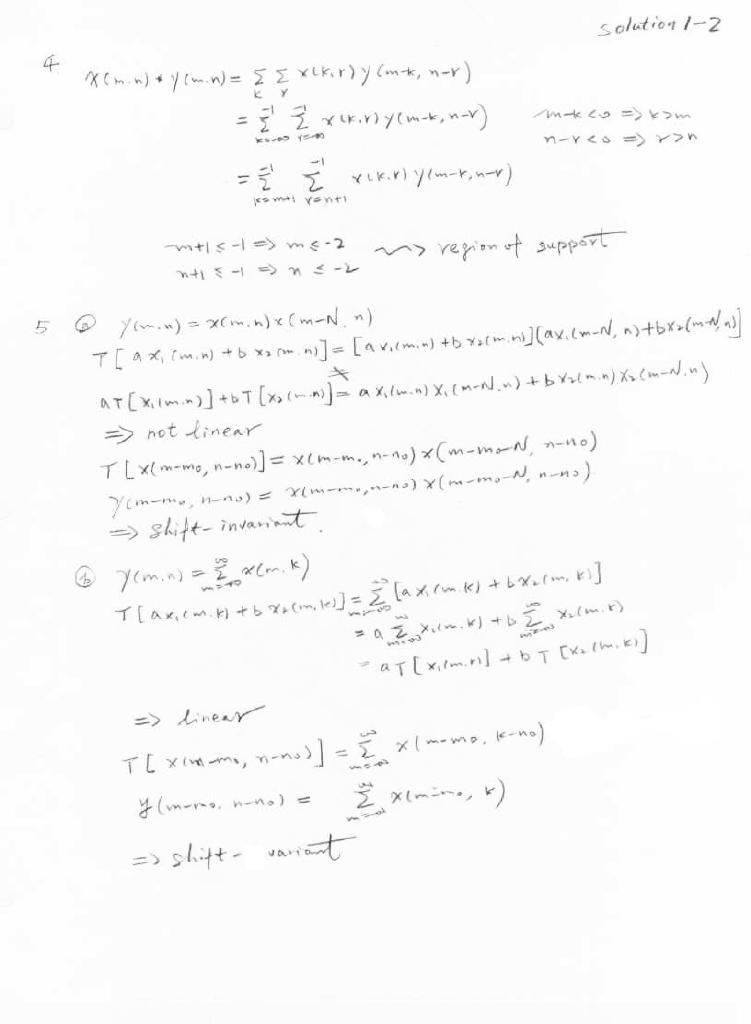 solution 1-2
4 x(m.n) * y(m.n) = Σ_k Σ_r x(k,r) y(m-k, n-r)
= Σ_{k=-∞}^{-1} Σ_{r=-∞}^{-1} x(k,r) y(m-k, n-r) m-k<0 => k>m
n-r<0 => r>n
= Σ_{k=m+1}^{-1} Σ_{r=n+1}^{-1} x(k.r) y(m-k,n-r)
m+1 ≤ -1 => m ≤ -2 ⇝ region of support
n+1 ≤ -1 => n ≤ -2
5 ⓐ y(m.n) = x(m.n) x(m-N. n)
T[a x₁(m.n) + b x₂(m.n)] = [a x₁(m.n) + b x₂(m.n)][a x₁(m-N, n) + b x₂(m-N, n)]
≠
aT[x₁(m.n)] + bT[x₂(m.n)] = a x₁(m.n) x₁(m-N.n) + b x₂(m.n) x₂(m-N.n)
=> not linear
T[x(m-m₀, n-n₀)] = x(m-m₀, n-n₀) x(m-m₀-N, n-n₀)
y(m-m₀, n-n₀) = x(m-m₀, n-n₀) x(m-m₀-N, n-n₀)
=> shift-invariant.
ⓑ y(m.n) = Σ_{m=-∞}^{∞} x(m.k)
T[a x₁(m.k) + b x₂(m,k)] = Σ_{m=-∞}^{∞} [a x₁(m.k) + b x₂(m, k)]
= a Σ_{m=-∞}^{∞} x₁(m.k) + b Σ_{m=-∞}^{∞} x₂(m.k)
= aT[x₁(m.n)] + bT[x₂(m.k)]
=> linear
T[x(m-m₀, n-n₀)] = Σ_{m=-∞}^{∞} x(m-m₀, k-n₀)
y(m-m₀, n-n₀) = Σ_{m=-∞}^{∞} x(m-m₀, k)
=> shift- variant